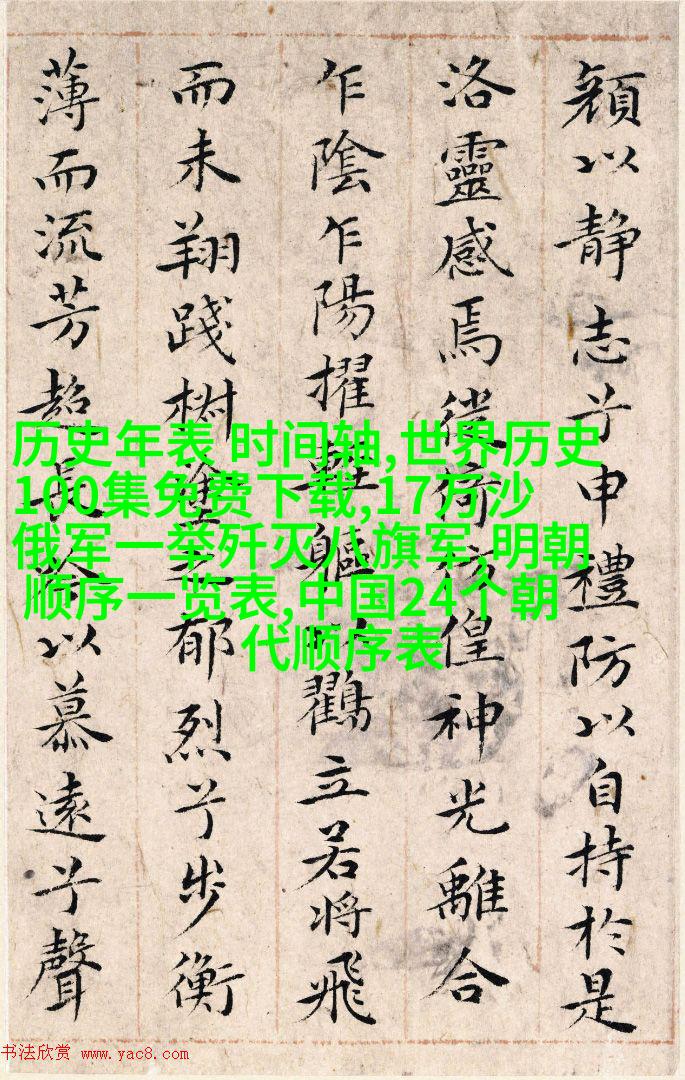 顏以静志兮申禮防以自持於是
洛靈感焉徙倚彷偟神光離合
乍陰乍陽擢輕軀以鶴立若將飛
而未翔踐椒塗之郁烈兮步衡
薄而流芳超長吟以慕遠兮聲
历史年表 时间轴,世界历史
100集免费下载,17万沙
俄军一举歼灭八旗军,明朝
顺序一览表,中国24个朝
代顺序表
书法欣赏 www.yac8.com